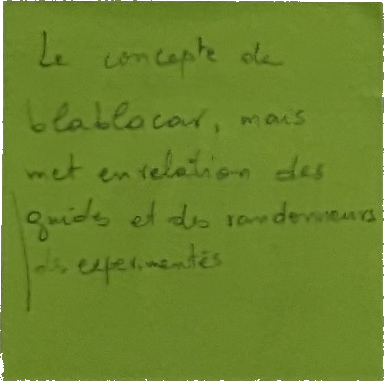 Le concepte de
blablacar, mais
met en relation des
guides et des randonneurs
des experimentés